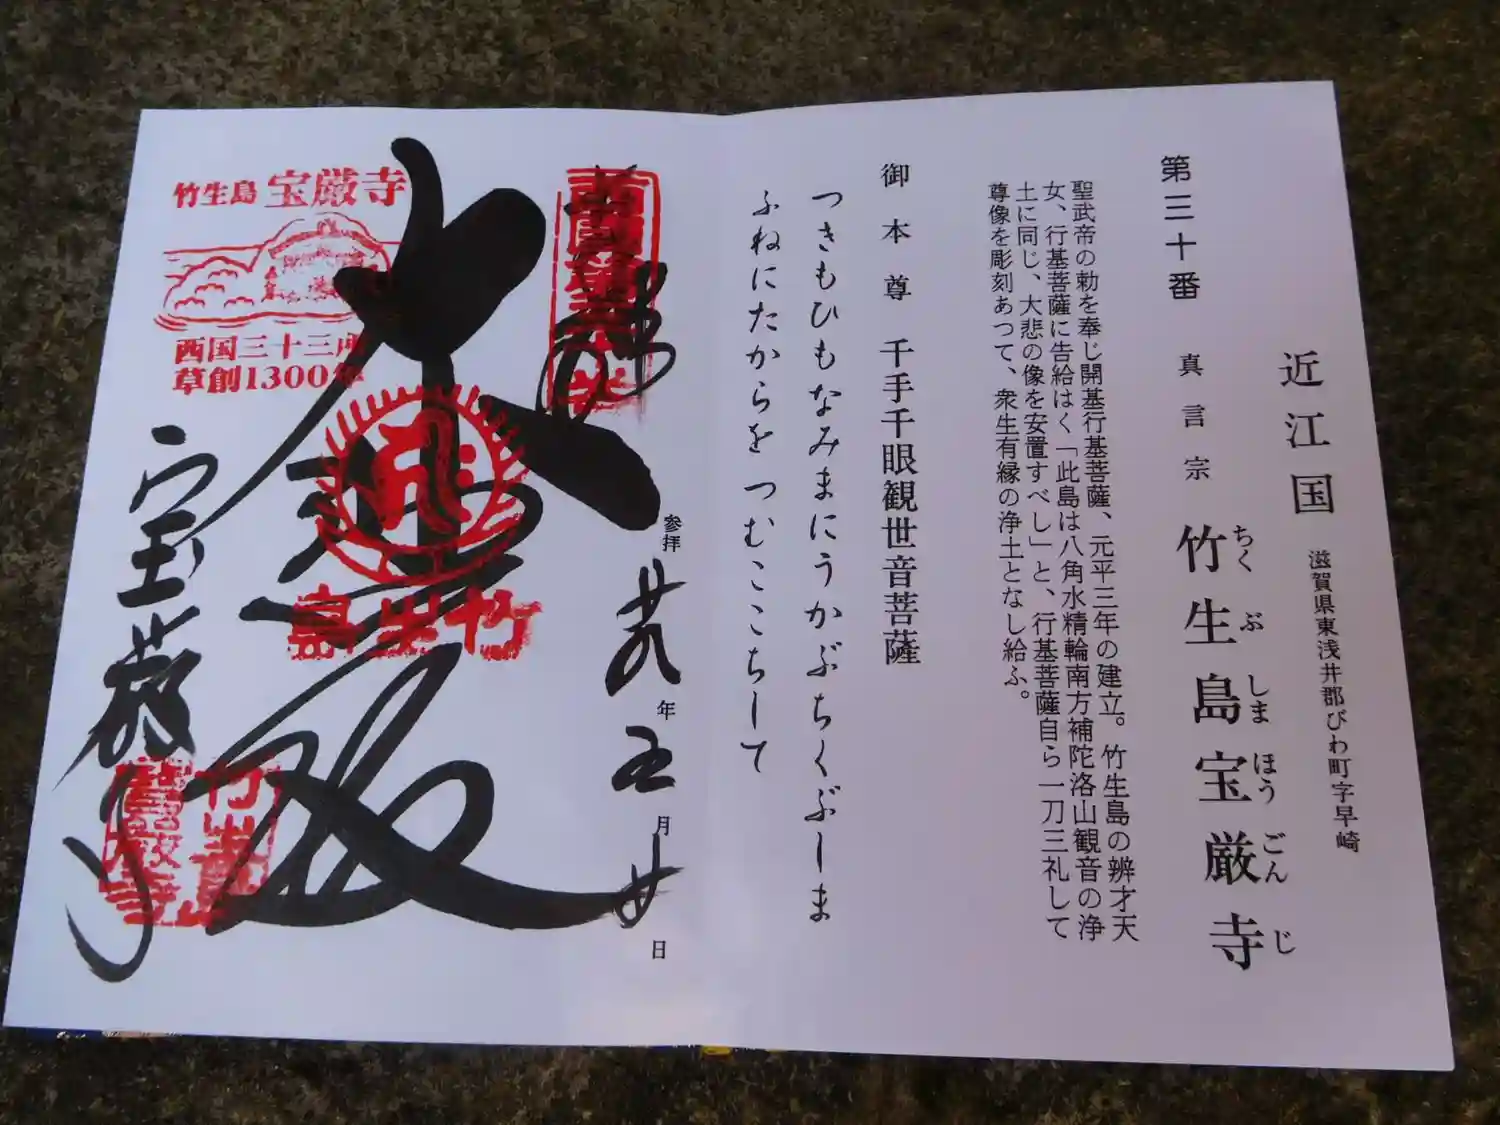 近江国 滋賀県東浅井郡びわ町字早崎
第三十番 真言宗 竹生島宝厳寺
ちくぶしまほうごんじ
聖武帝の勅を奉じ開基行基菩薩、元平三年の建立。竹生島の辨才天
女、行基菩薩に告給はく「此島は八角水精輪南方補陀洛山観音の浄
土に同じ、大悲の像を安置すべし」と、行基菩薩自ら一刀三礼して
尊像を彫刻あつて、衆生有縁の浄土となし給ふ。
御本尊 千手千眼観世音菩薩
つきもひもなみまにうかぶちくぶーしま
ふねにたからを つむここちーして
参拝 年 五月 廿日
奉拝
大悲殿
竹生島
宝厳寺
竹生島 宝厳寺
西国三十三所
草創1300年